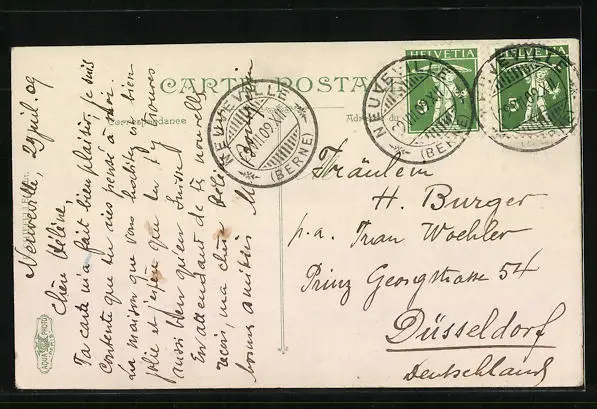 CARTE POSTALE
Correspondance
HELVETIA
HELVETIA
5
5
NEUVEVILLE
(BERNE)
NEUVEVILLE
(BERNE)
NEUVEVILLE
Neuveville, 29 juil. 09
Chère Hélène,
Ta carte m'a fait bien plaisir, je suis
contente que tu aies pensé à moi.
La maison que vous habitez est bien
jolie et j'espère que tu t'y trouves
aussi bien qu'en Suisse
En attendant de tes nouvelles
reçois, ma chère Hélène
bonnes amitiés
Fräulein
H. Burger
p.a. Frau Woehler
Prinz Georgstrasse 54
Düsseldorf
Deutschland
AQUA PHOTO